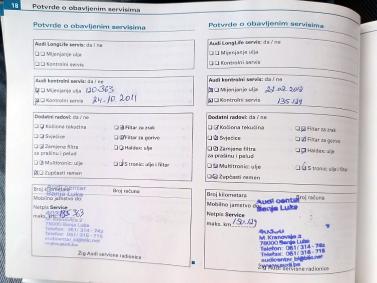 18 Potvrde o obavljenim servisima
Potvrde o obavljenim servisima
Audi LongLife servis: da / ne
Mijenjanje ulja
Kontrolni servis
Audi kontrolni servis: da / ne
Mijenjanje ulja 120.363
Kontrolni servis 24.10.2011
Dodatni radovi: da / ne
Kočiona tekućina Filtar za zrak
Svjećice Filtar za gorivo
Zamjena filtra Haldex: ulje
za prašinu i pelud
Multitronic: ulje S tronic: ulje i filtar
Zupčasti remen
Broj kilometara Broj računa
Mobilno jamstvo do
Netpis Service
maks. km
Žig Audi servisne radionice
Potvrde o obavljenim servisima
Audi LongLife servis: da / ne
Mijenjanje ulja
Kontrolni servis
Audi kontrolni servis: da / ne
Mijenjanje ulja
Kontrolni servis 135.129
Dodatni radovi: da / ne
Kočiona tekućina Filtar za zrak
Svjećice Filtar za gorivo
Zamjena filtra Haldex: ulje
za prašinu i pelud
Multitronic: ulje S tronic: ulje i filtar
Zupčasti remen
Broj kilometara Broj računa
Audi centar
Banja Luka
Mobilno jamstvo do
Netpis Service
maks. km
78000 Banja Luka
Žig Audi servisne radionice